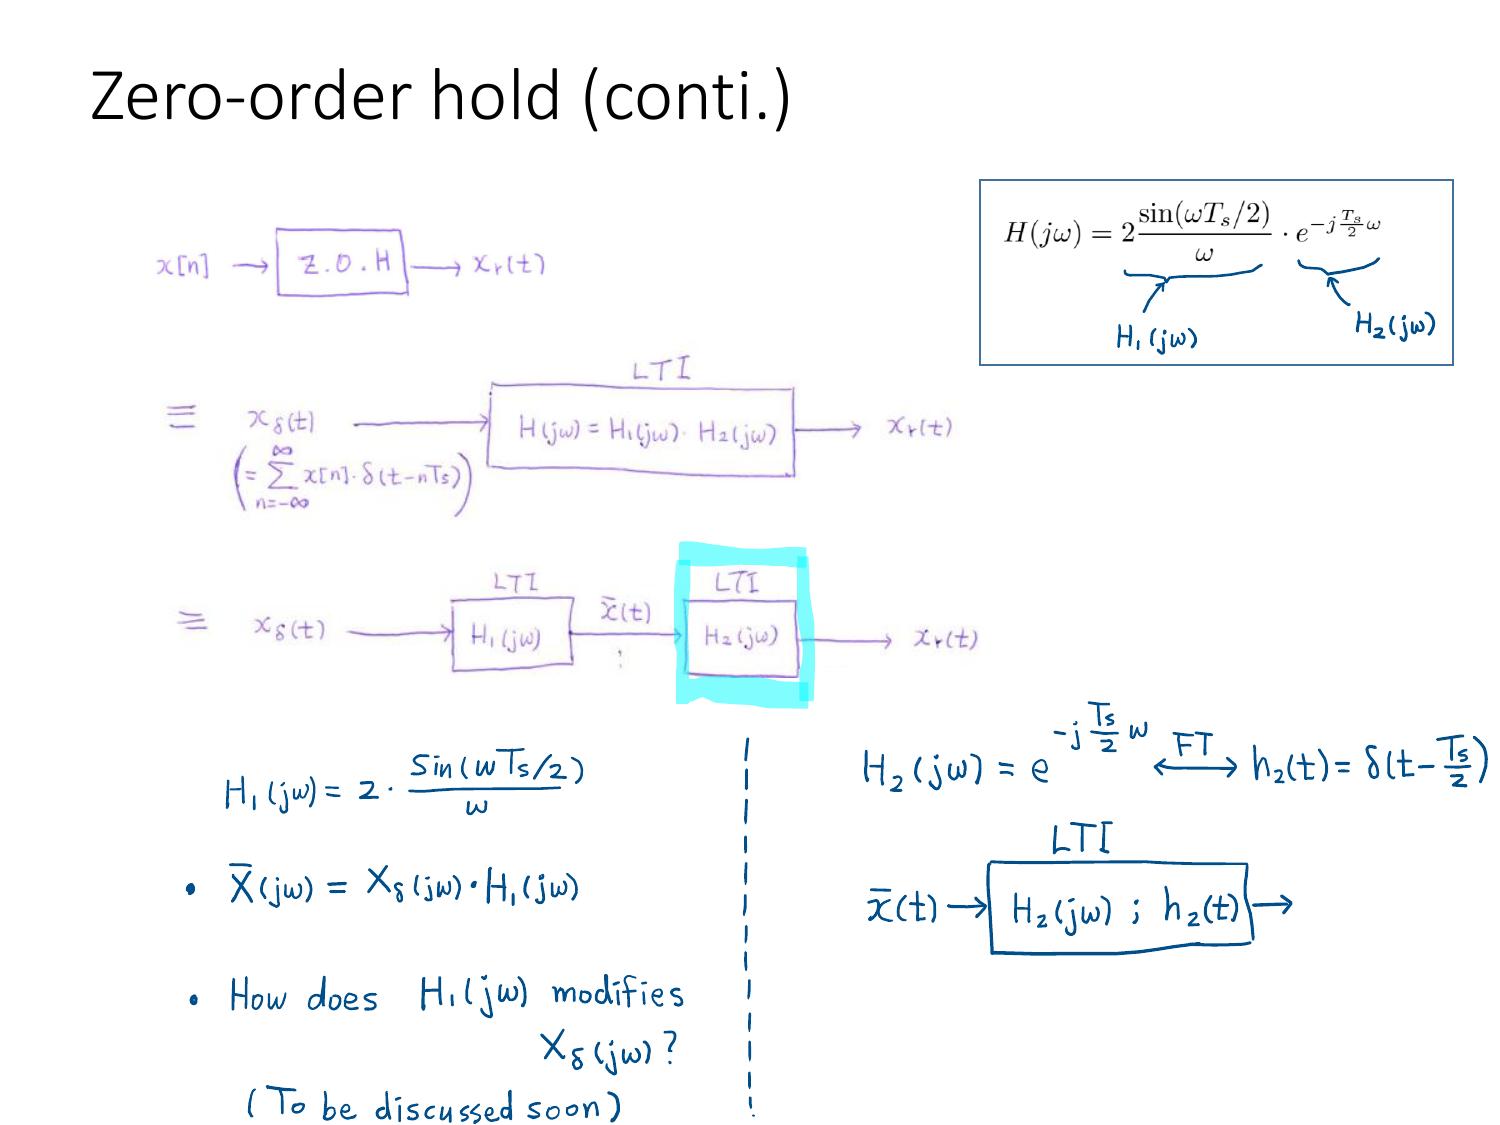 Zero-order hold (conti.)
H(jω) = 2 sin(ωTₛ/2)/ω · e^{-j Tₛ/2 ω}
H₁(jω)
H₂(jω)
x[n] → Z.O.H → xᵣ(t)
LTI
≡ x_δ(t) → H(jω) = H₁(jω) · H₂(jω) → xᵣ(t)
(= ∑_{n=-∞}^{∞} x[n]·δ(t-nTs))
LTI LTI
≡ x_δ(t) → H₁(jω) x̄(t) → H₂(jω) → xᵣ(t)
H₁(jω) = 2 · Sin(ωTs/2)/ω
• X̄(jω) = X_δ(jω)·H₁(jω)
• How does H₁(jω) modifies
X_δ(jω)?
(To be discussed soon)
H₂(jω) = e^{-j Ts/2 ω} ←FT→ h₂(t) = δ(t - Ts/2)
LTI
x̄(t) → H₂(jω) ; h₂(t) →